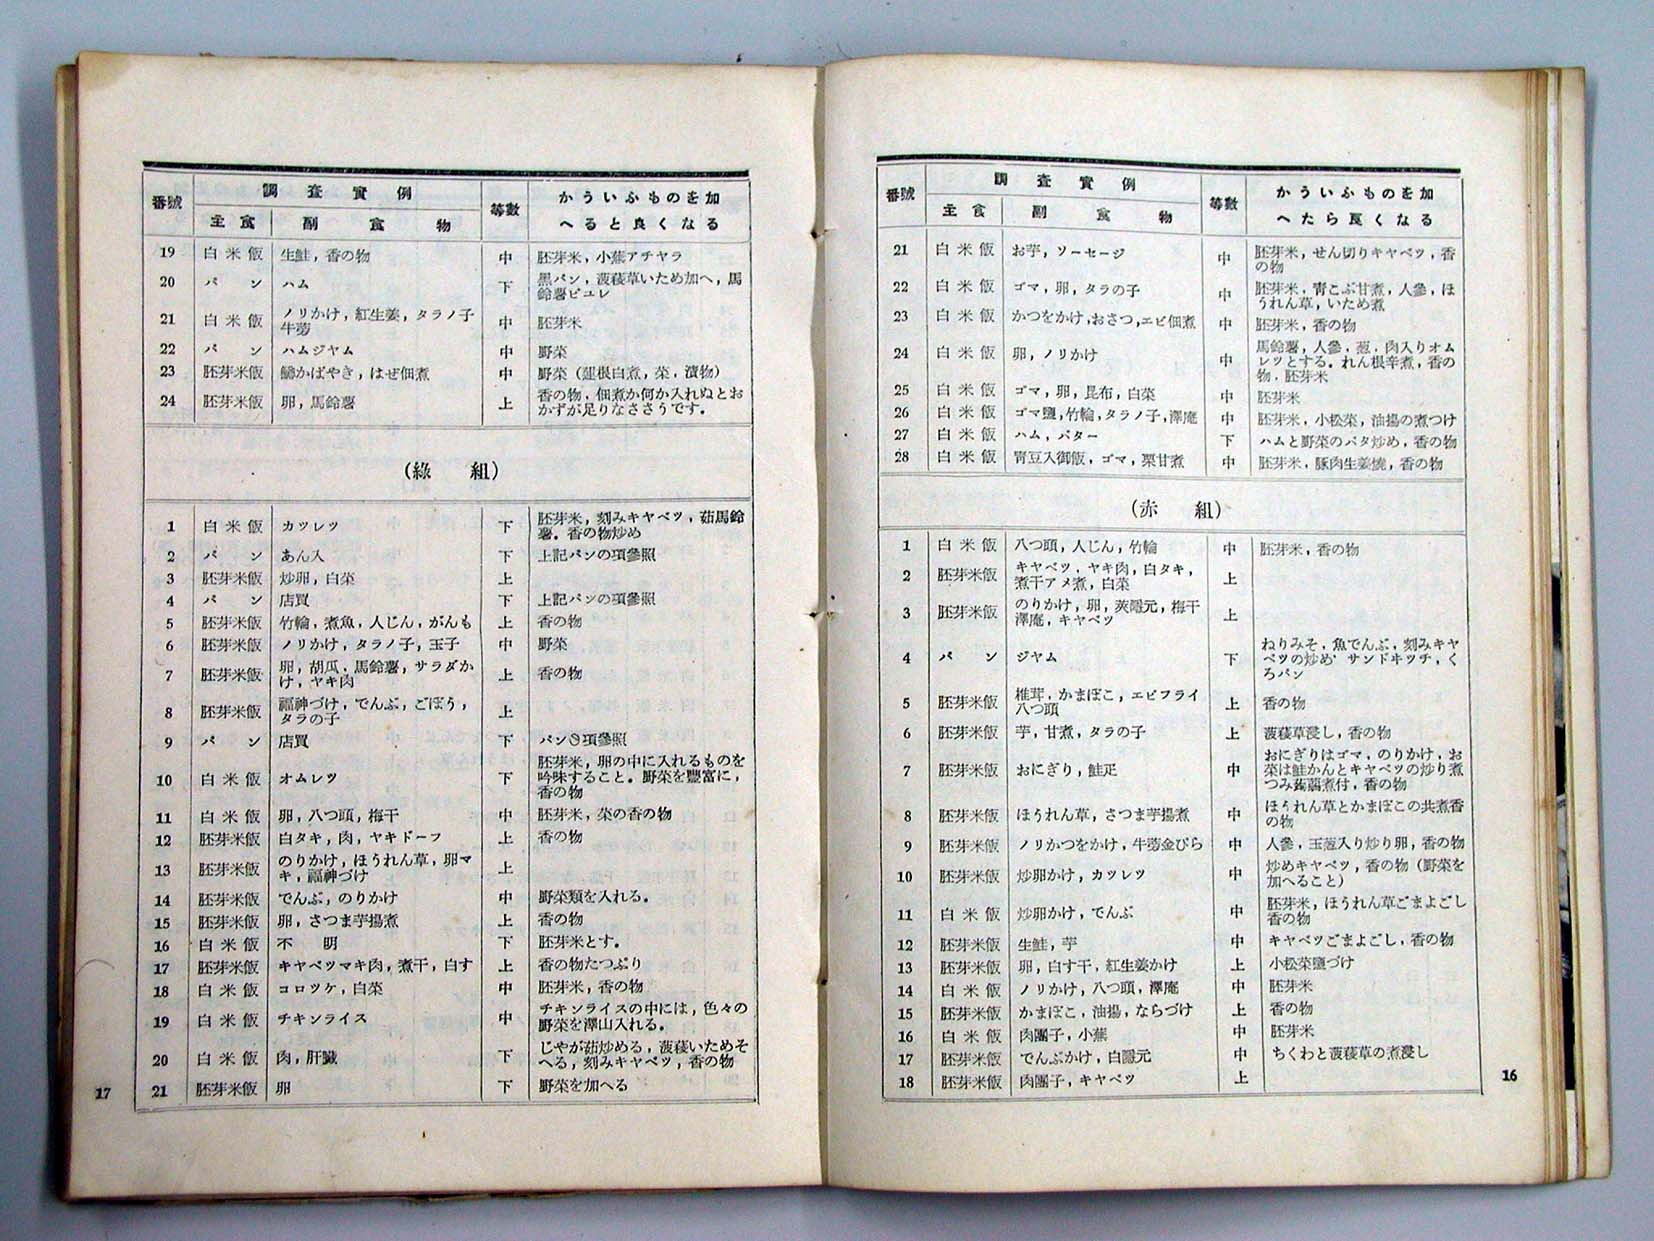 番號 調査實例 等數 かういふものを加
主食 副食物 へたら良くなる
21 白米飯 お芋,ソーセージ 中 胚芽米,せん切りキャベツ,香
の物
22 白米飯 ゴマ,卵,タラの子 中 胚芽米,靑こぶ甘煮,人參,ほ
うれん草,いため煮
23 白米飯 かつをかけ,おさつ,エビ佃煮 中 胚芽米,香の物
24 白米飯 卵,ノリかけ 中 馬鈴薯,人參,葱,肉入りオム
レツとする。れん根辛煮,香の
物,胚芽米
25 白米飯 ゴマ,卵,昆布,白菜 中 胚芽米
26 白米飯 ゴマ鹽,竹輪,タラノ子,澤庵 中 胚芽米,小松菜,油揚の煮つけ
27 白米飯 ハム,バター 下 ハムと野菜のバタ炒め,香の物
28 白米飯 靑豆入御飯,ゴマ,栗甘煮 中 胚芽米,豚肉生姜燒,香の物
(赤組)
1 白米飯 八つ頭,人じん,竹輪 中 胚芽米,香の物
2 胚芽米飯 キャベツ,ヤキ肉,白タキ,
煮干アメ煮,白菜 上
3 胚芽米飯 のりかけ,卵,莢隱元,梅干
澤庵,キャベツ 上
4 パン ジヤム 下 ねりみそ,魚でんぶ,刻みキヤ
ベツの炒め サンドキツチ,く
ろパン
5 胚芽米飯 椎茸,かまぼこ,エビフライ
八つ頭 上 香の物
6 胚芽米飯 芋,甘煮,タラの子 上 菠薐草浸し,香の物
7 胚芽米飯 おにぎり,鮭疋 中 おにぎりはゴマ,のりかけ,お
菜は鮭かんとキャベツの炒り煮
つみ蒟蒻煮付,香の物
8 胚芽米飯 ほうれん草,さつま芋揚煮 中 ほうれん草とかまぼこの共煮香
の物
9 胚芽米飯 ノリかつをかけ,牛蒡金ぴら 中 人參,玉葱入り炒り卵,香の物
10 胚芽米飯 炒卵かけ,カツレツ 中 炒めキャベツ,香の物(野菜を
加へること)
11 白米飯 炒卵かけ,でんぶ 中 胚芽米,ほうれん草ごまよごし
香の物
12 胚芽米飯 生鮭,芋 中 キヤベツごまよごし,香の物
13 胚芽米飯 卵,白す干,紅生姜かけ 上 小松菜鹽づけ
14 白米飯 ノリかけ,八つ頭,澤庵 中 胚芽米
15 胚芽米飯 かまぼこ,油揚,ならづけ 上 香の物
16 白米飯 肉團子,小蕪 中 胚芽米
17 胚芽米飯 でんぶかけ,白隱元 中 ちくわと菠薐草の煮浸し
18 胚芽米飯 肉團子,キヤベツ 上
16
番號 調査實例 等數 かういふものを加
主食 副食物 へると良くなる
19 白米飯 生鮭,香の物 中 胚芽米,小蕪アチヤラ
20 パン ハム 下 黑パン,菠薐草いため加へ,馬
鈴薯ピユレ
21 白米飯 ノリかけ,紅生姜,タラノ子
牛蒡 中 胚芽米
22 パン ハムジヤム 中 野菜
23 胚芽米飯 かばやき,はぜ佃煮 中 野菜(蓮根白煮,菜,漬物)
24 胚芽米飯 卵,馬鈴薯 上 香の物,佃煮か何か入れぬとお
かずが足りなささうです。
(綠組)
1 白米飯 カツレツ 下 胚芽米,刻みキヤベツ,茹馬鈴
薯。香の物炒め
2 パン あん入 下 上記パンの項參照
3 胚芽米飯 炒卵,白菜 上
4 パン 店買 下 上記パンの項參照
5 胚芽米飯 竹輪,煮魚,人じん,がんも 上 香の物
6 胚芽米飯 ノリかけ,タラノ子,玉子 中 野菜
7 胚芽米飯 卵,胡瓜,馬鈴薯,サラダか
け,ヤキ肉 上 香の物
8 胚芽米飯 福神づけ,でんぶ,ごぼう,
タラの子 上
9 パン 店買 下 パンの項參照
10 白米飯 オムレツ 下 胚芽米,卵の中に入れるものを
吟味すること。野菜を豐富に,
香の物
11 白米飯 卵,八つ頭,梅干 中 胚芽米,菜の香の物
12 胚芽米飯 白タキ,肉,ヤキドーフ 上 香の物
13 胚芽米飯 のりかけ,ほうれん草,卵マ
キ,福神づけ 上
14 胚芽米飯 でんぶ,のりかけ 中 野菜類を入れる。
15 胚芽米飯 卵,さつま芋揚煮 上 香の物
16 白米飯 不明 下 胚芽米とす。
17 胚芽米飯 キヤベツマキ肉,煮干,白す 上 香の物たつぷり
18 白米飯 コロツケ,白菜 中 胚芽米,香の物
19 白米飯 チキンライス 中 チキンライスの中には,色々の
野菜を澤山入れる。
20 白米飯 肉,肝臟 下 じやが茹炒める,菠薐いためそ
へる,刻みキヤベツ,香の物
21 胚芽米飯 卵 下 野菜を加へる
17